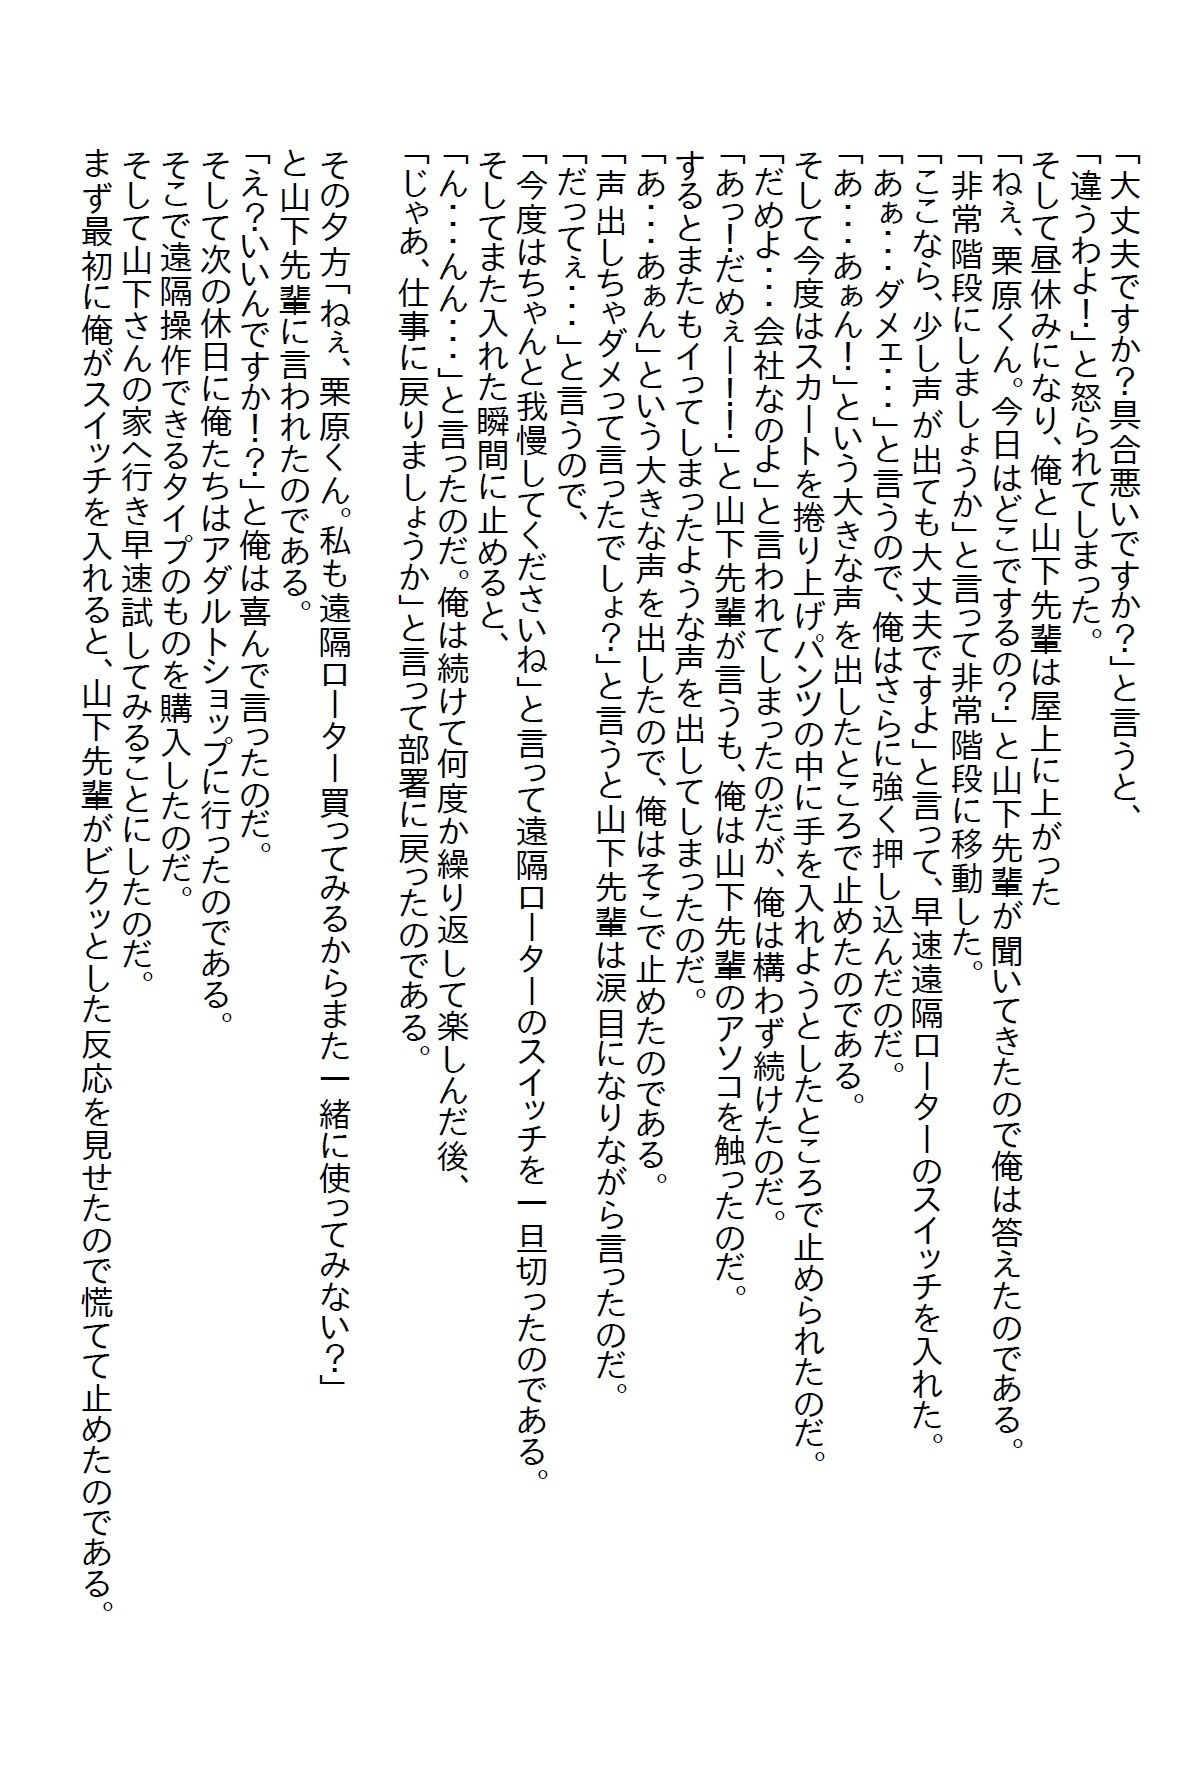 「大丈夫ですか？具合悪いですか？」と言うと、
「違うわよ！」と怒られてしまった。
そして昼休みになり、俺と山下先輩は屋上に上がった
「ねぇ、栗原くん。今日はどこでするの？」と山下先輩が聞いてきたので俺は答えたのである。
「非常階段にしましょうか」と言って非常階段に移動した。
「ここなら、少し声が出ても大丈夫ですよ」と言って、早速遠隔ローターのスイッチを入れた。
「あぁ・・・ダメェ・・・」と言うので、俺はさらに強く押し込んだのだ。
「あ・・・あぁん！」という大きな声を出したところで止めたのである。
そして今度はスカートを捲り上げパンツの中に手を入れようとしたところで止められたのだ。
「だめよ・・・会社なのよ」と言われてしまったのだが、俺は構わず続けたのだ。
「あっ！だめぇー！！！」と山下先輩が言うも、俺は山下先輩のアソコを触ったのだ。
するとまたもイってしまったような声を出してしまったのだ。
「あ・・・あぁん」という大きな声を出したので、俺はそこで止めたのである。
「声出しちゃダメって言ったでしょ？」と言うと山下先輩は涙目になりながら言ったのだ。
「だってぇ・・・」と言うので、
「今度はちゃんと我慢してくださいね」と言って遠隔ローターのスイッチを一旦切ったのである。
そしてまた入れた瞬間に止めると、
「ん・・・んん・・・」と言ったのだ。俺は続けて何度か繰り返して楽しんだ後、
「じゃあ、仕事に戻りましょうか」と言って部署に戻ったのである。
その夕方「ねぇ、栗原くん。私も遠隔ローター買ってみるからまた一緒に使ってみない？」
と山下先輩に言われたのである。
「え？いいんですか！？」と俺は喜んで言ったのだ。
そして次の休日に俺たちはアダルトショップに行ったのである。
そこで遠隔操作できるタイプのものを購入したのだ。
そして山下さんの家へ行き早速試してみることにしたのだ。
まず最初に俺がスイッチを入れると、山下先輩がビクッとした反応を見せたので慌てて止めたのである。